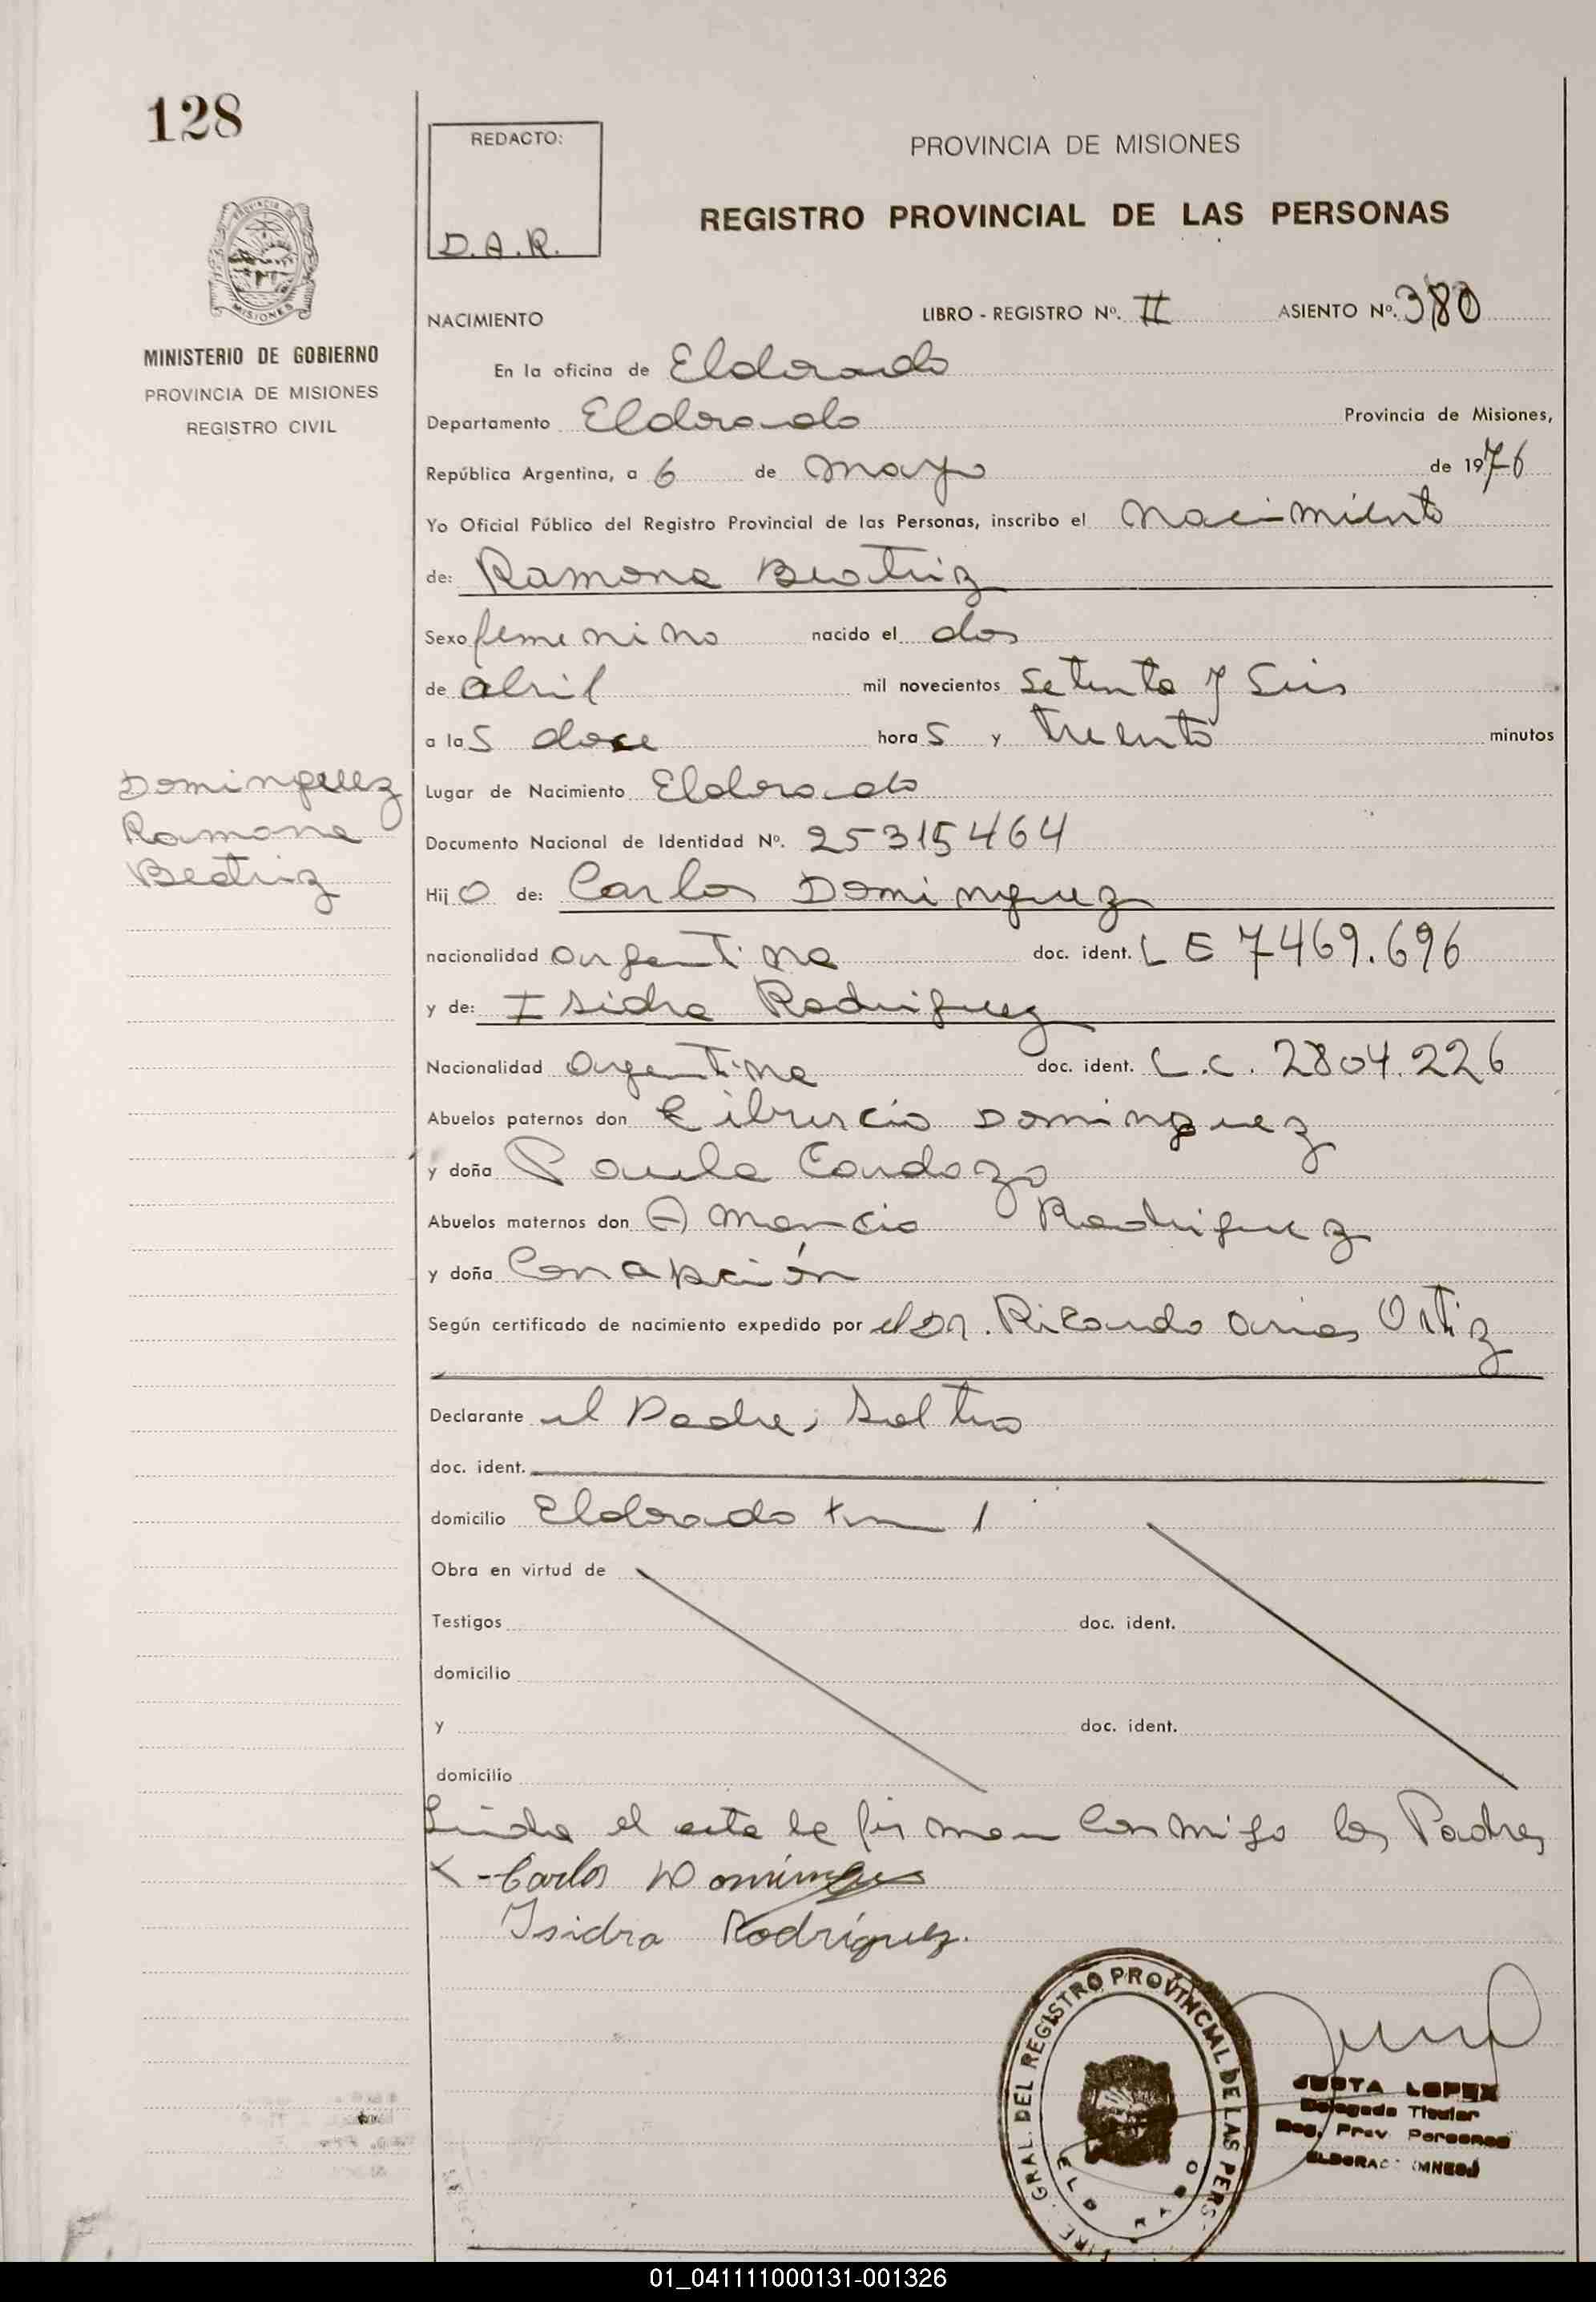 128
REDACTO:
D.A.R.
PROVINCIA DE MISIONES
REGISTRO PROVINCIAL DE LAS PERSONAS
PROVINCIA DE
MISIONES
MINISTERIO DE GOBIERNO
PROVINCIA DE MISIONES
REGISTRO CIVIL
NACIMIENTO LIBRO - REGISTRO Nº. II ASIENTO Nº. 380
En la oficina de Eldorado
Departamento Eldorado Provincia de Misiones,
República Argentina, a 6 de mayo de 1976
Yo Oficial Público del Registro Provincial de las Personas, inscribo el nacimiento
de: Ramona Beatriz
Sexo femenino nacido el dos
de abril mil novecientos setenta y seis
a las doce horas y treinta minutos
Dominguez
Ramona
Beatriz
Lugar de Nacimiento Eldorado
Documento Nacional de Identidad Nº. 25315464
Hijo de: Carlos Dominguez
nacionalidad argentina doc. ident. L E 7469.696
y de: Isidra Rodriguez
Nacionalidad argentina doc. ident. L.C. 2804.226
Abuelos paternos don Dominguez
y doña Paula Cardozo
Abuelos maternos don Amancio Rodriguez
y doña
Según certificado de nacimiento expedido por el Dr. Ricardo Arias Ortiz
Declarante el Padre, soltero
doc. ident.
domicilio Eldorado km 1
Obra en virtud de
Testigos doc. ident.
domicilio
y doc. ident.
domicilio
Leida el acta la firman conmigo los Padres
X - Carlos Dominguez
Isidra Rodríguez.
GRAL. DEL REGISTRO PROVINCIAL DE LAS PERS.
ELDORADO
JUSTA LOPEZ
Delegada Titular
Reg. Prov Personas
ELDORADO (MNES.)
01_041111000131-001326